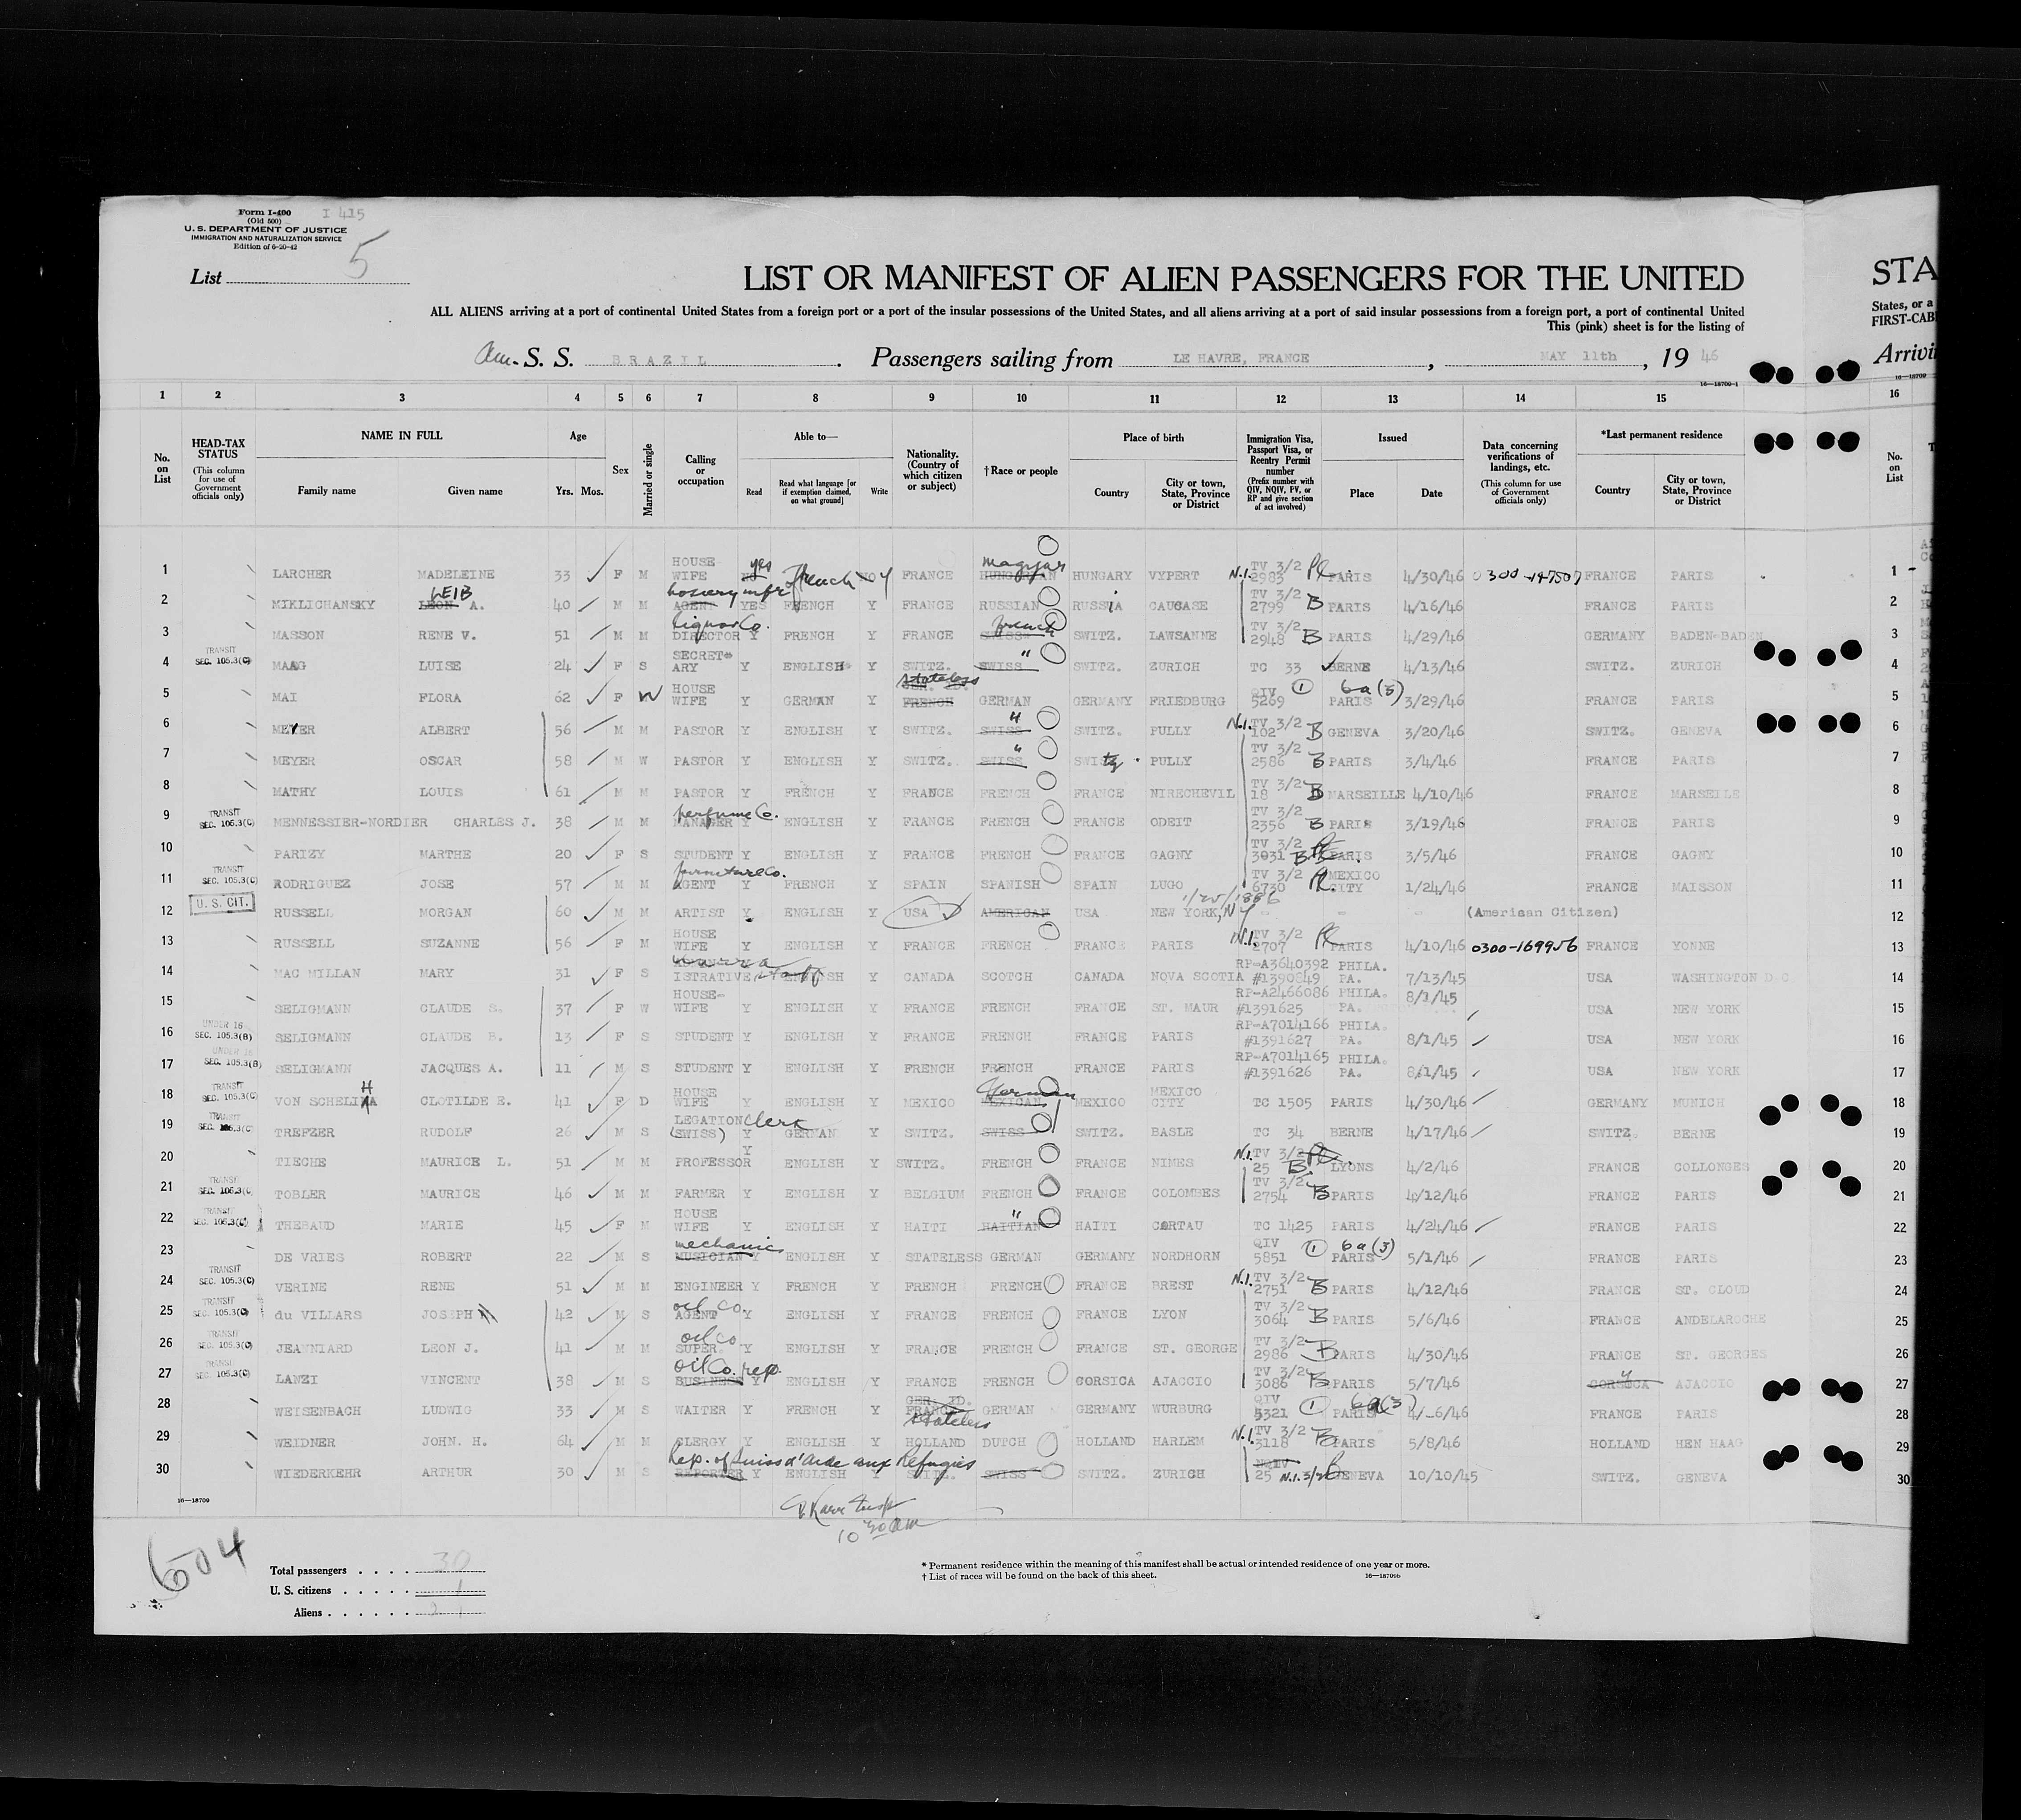 Form I-400 I 415
(Old 500)
U. S. DEPARTMENT OF JUSTICE
IMMIGRATION AND NATURALIZATION SERVICE
Edition of 6-20-42
List 5
LIST OR MANIFEST OF ALIEN PASSENGERS FOR THE UNITED
STA
ALL ALIENS arriving at a port of continental United States from a foreign port or a port of the insular possessions of the United States, and all aliens arriving at a port of said insular possessions from a foreign port, a port of continental United
States, or a
This (pink) sheet is for the listing of
FIRST-CAB
Am. S. S. BRAZIL. Passengers sailing from LE HAVRE, FRANCE, MAY 11th, 19 46
Arrivi
16—18709-1
16—18709
1 2 3 4 5 6 7 8 9 10 11 12 13 14 15 16
No. on List
HEAD-TAX STATUS (This column for use of Government officials only)
NAME IN FULL Family name Given name
Age Yrs. Mos.
Sex
Married or single
Calling or occupation
Able to— Read Read what language [or if exemption claimed, on what ground] Write
Nationality. (Country of which citizen or subject)
†Race or people
Place of birth Country City or town, State, Province or District
Immigration Visa, Passport Visa, or Reentry Permit number (Prefix number with QIV, NQIV, PV, or RP and give section of act involved)
Issued Place Date
Data concerning verifications of landings, etc. (This column for use of Government officials only)
*Last permanent residence Country City or town, State, Province or District
No. on List
1 LARCHER MADELEINE 33 F M HOUSE WIFE yes French Y FRANCE magyar HUNGARIAN HUNGARY VYPERT N.I. TV 3/2 2983 PARIS 4/30/46 0300-147507 FRANCE PARIS 1
2 MIKLICHANSKY LEON LEIB A. 40 M M AGENT hosiery mfr YES FRENCH Y FRANCE RUSSIAN RUSSIA CAUCASE TV 3/2 2799 B PARIS 4/16/46 FRANCE PARIS 2
3 MASSON RENE V. 51 M M DIRECTOR liquor Co. Y FRENCH Y FRANCE SWISS french SWITZ. LAWSANNE TV 3/2 2948 B PARIS 4/29/46 GERMANY BADEN-BADEN 3
4 TRANSIT SEC. 105.3(C) MAAG LUISE 24 F S SECRET-ARY Y ENGLISH Y SWITZ. SWISS " SWITZ. ZURICH TC 33 BERNE 4/13/46 SWITZ. ZURICH 4
5 MAI FLORA 62 F W HOUSE WIFE Y GERMAN Y stateless FRENCH GERMAN GERMANY FRIEDBURG QIV 5269 1 6a(3) PARIS 3/29/46 FRANCE PARIS 5
6 MEYER ALBERT 56 M M PASTOR Y ENGLISH Y SWITZ. SWISS " SWITZ. PULLY N.I. TV 3/2 102 B GENEVA 3/20/46 SWITZ. GENEVA 6
7 MEYER OSCAR 58 M W PASTOR Y ENGLISH Y SWITZ. SWISS " SWITZ. PULLY TV 3/2 2586 B PARIS 3/4/46 FRANCE PARIS 7
8 MATHY LOUIS 61 M M PASTOR Y FRENCH Y FRANCE FRENCH FRANCE NIRECHEVIL TV 3/2 18 B MARSEILLE 4/10/46 FRANCE MARSEILE 8
9 TRANSIT SEC. 105.3(C) MENNESSIER-NORDIER CHARLES J. 38 M M MANAGER perfume Co. Y ENGLISH Y FRANCE FRENCH FRANCE ODEIT TV 3/2 2356 B PARIS 3/19/46 FRANCE PARIS 9
10 PARIZY MARTHE 20 F S STUDENT Y ENGLISH Y FRANCE FRENCH FRANCE GAGNY TV 3/2 3031 B PARIS 3/5/46 FRANCE GAGNY 10
11 TRANSIT SEC. 105.3(C) RODRIGUEZ JOSE 57 M M AGENT furniture Co. Y FRENCH Y SPAIN SPANISH SPAIN LUGO TV 3/2 6730 MEXICO CITY 1/24/46 FRANCE MAISSON 11
12 U. S. CIT. RUSSELL MORGAN 60 M M ARTIST Y ENGLISH Y USA AMERICAN USA NEW YORK, NY 1/25/1886 - - - (American Citizen) 12
13 RUSSELL SUZANNE 56 F M HOUSE WIFE Y ENGLISH Y FRANCE FRENCH FRANCE PARIS N.I. TV 3/2 2707 PARIS 4/10/46 0300-169956 FRANCE YONNE 13
14 MAC MILLAN MARY 31 F S ISTRATIVE staff Y CANADA SCOTCH CANADA NOVA SCOTIA RP-A3640392 #1390849 PHILA. PA. 7/13/45 USA WASHINGTON D C 14
15 SELIGMANN CLAUDE S. 37 F W HOUSE-WIFE Y ENGLISH Y FRANCE FRENCH FRANCE ST. MAUR RP-A2466086 #1391625 PHILA. PA. 8/1/45 USA NEW YORK 15
16 UNDER 16 SEC. 105.3(B) SELIGMANN CLAUDE B. 13 F S STUDENT Y ENGLISH Y FRANCE FRENCH FRANCE PARIS RP-A7014166 #1391627 PHILA. PA. 8/1/45 USA NEW YORK 16
17 UNDER 16 SEC. 105.3(B) SELIGMANN JACQUES A. 11 M S STUDENT Y ENGLISH Y FRENCH FRENCH FRANCE PARIS RP-A7014165 #1391626 PHILA. PA. 8/1/45 USA NEW YORK 17
18 TRANSIT SEC. 105.3(C) VON SCHELIHA CLOTILDE E. 41 F D HOUSE WIFE Y ENGLISH Y MEXICO MEXICAN German MEXICO MEXICO CITY TC 1505 PARIS 4/30/46 GERMANY MUNICH 18
19 TRANSIT SEC. 105.3(C) TREFZER RUDOLF 26 M S LEGATION clerk (SWISS) Y GERMAN Y SWITZ. SWISS SWITZ. BASLE TC 34 BERNE 4/17/46 SWITZ. BERNE 19
20 TIECHE MAURICE L. 51 M M PROFESSOR Y ENGLISH Y SWITZ. FRENCH FRANCE NIMES N.I. TV 3/2 25 B LYONS 4/2/46 FRANCE COLLONGES 20
21 TRANSIT SEC. 105.3(C) TOBLER MAURICE 46 M M FARMER Y ENGLISH Y BELGIUM FRENCH FRANCE COLOMBES TV 3/2 2754 B PARIS 4/12/46 FRANCE PARIS 21
22 TRANSIT SEC. 105.3(C) THEBAUD MARIE 45 F M HOUSE WIFE Y ENGLISH Y HAITI HAITIAN " HAITI CARTAU TC 1425 PARIS 4/24/46 FRANCE PARIS 22
23 DE VRIES ROBERT 22 M S MUSICIAN mechanic Y ENGLISH Y STATELESS GERMAN GERMANY NORDHORN QIV 5851 1 6a(3) PARIS 5/1/46 FRANCE PARIS 23
24 TRANSIT SEC. 105.3(C) VERINE RENE 51 M M ENGINEER Y FRENCH Y FRENCH FRENCH FRANCE BREST N.I. TV 3/2 2751 B PARIS 4/12/46 FRANCE ST. CLOUD 24
25 TRANSIT SEC. 105.3(C) du VILLARS JOSEPH 42 M S AGENT oil Co Y ENGLISH Y FRANCE FRENCH FRANCE LYON TV 3/2 3064 B PARIS 5/6/46 FRANCE ANDELAROCHE 25
26 TRANSIT SEC. 105.3(C) JEANNIARD LEON J. 41 M M SUPER. oil co Y ENGLISH Y FRANCE FRENCH FRANCE ST. GEORGE TV 3/2 2986 B PARIS 4/30/46 FRANCE ST. GEORGES 26
27 TRANSIT SEC. 105.3(C) LANZI VINCENT 38 M S BUSINESS oil Co. rep. Y ENGLISH Y FRANCE FRENCH CORSICA AJACCIO TV 3/2 3086 B PARIS 5/7/46 CORSICA AJACCIO 27
28 WEISENBACH LUDWIG 33 M S WAITER Y FRENCH Y GER. ID. FRANCE stateless GERMAN GERMANY WURBURG QIV 5321 1 6a(3) PARIS 4/-6/46 FRANCE PARIS 28
29 WEIDNER JOHN. H. 64 M M CLERGY Y ENGLISH Y HOLLAND DUTCH HOLLAND HARLEM N.I. TV 3/2 3118 B PARIS 5/8/46 HOLLAND HEN HAAG 29
30 WIEDERKEHR ARTHUR 30 M S REPORTER Rep. of Suiss d'aide aux Refugies Y ENGLISH Y SWITZ. SWISS SWITZ. ZURICH NQIV 25 N.I. 3/2 GENEVA 10/10/45 SWITZ. GENEVA 30
16—18709
10 30 am
604
Total passengers 30
U. S. citizens 1
Aliens
* Permanent residence within the meaning of this manifest shall be actual or intended residence of one year or more.
† List of races will be found on the back of this sheet.
16—18709b